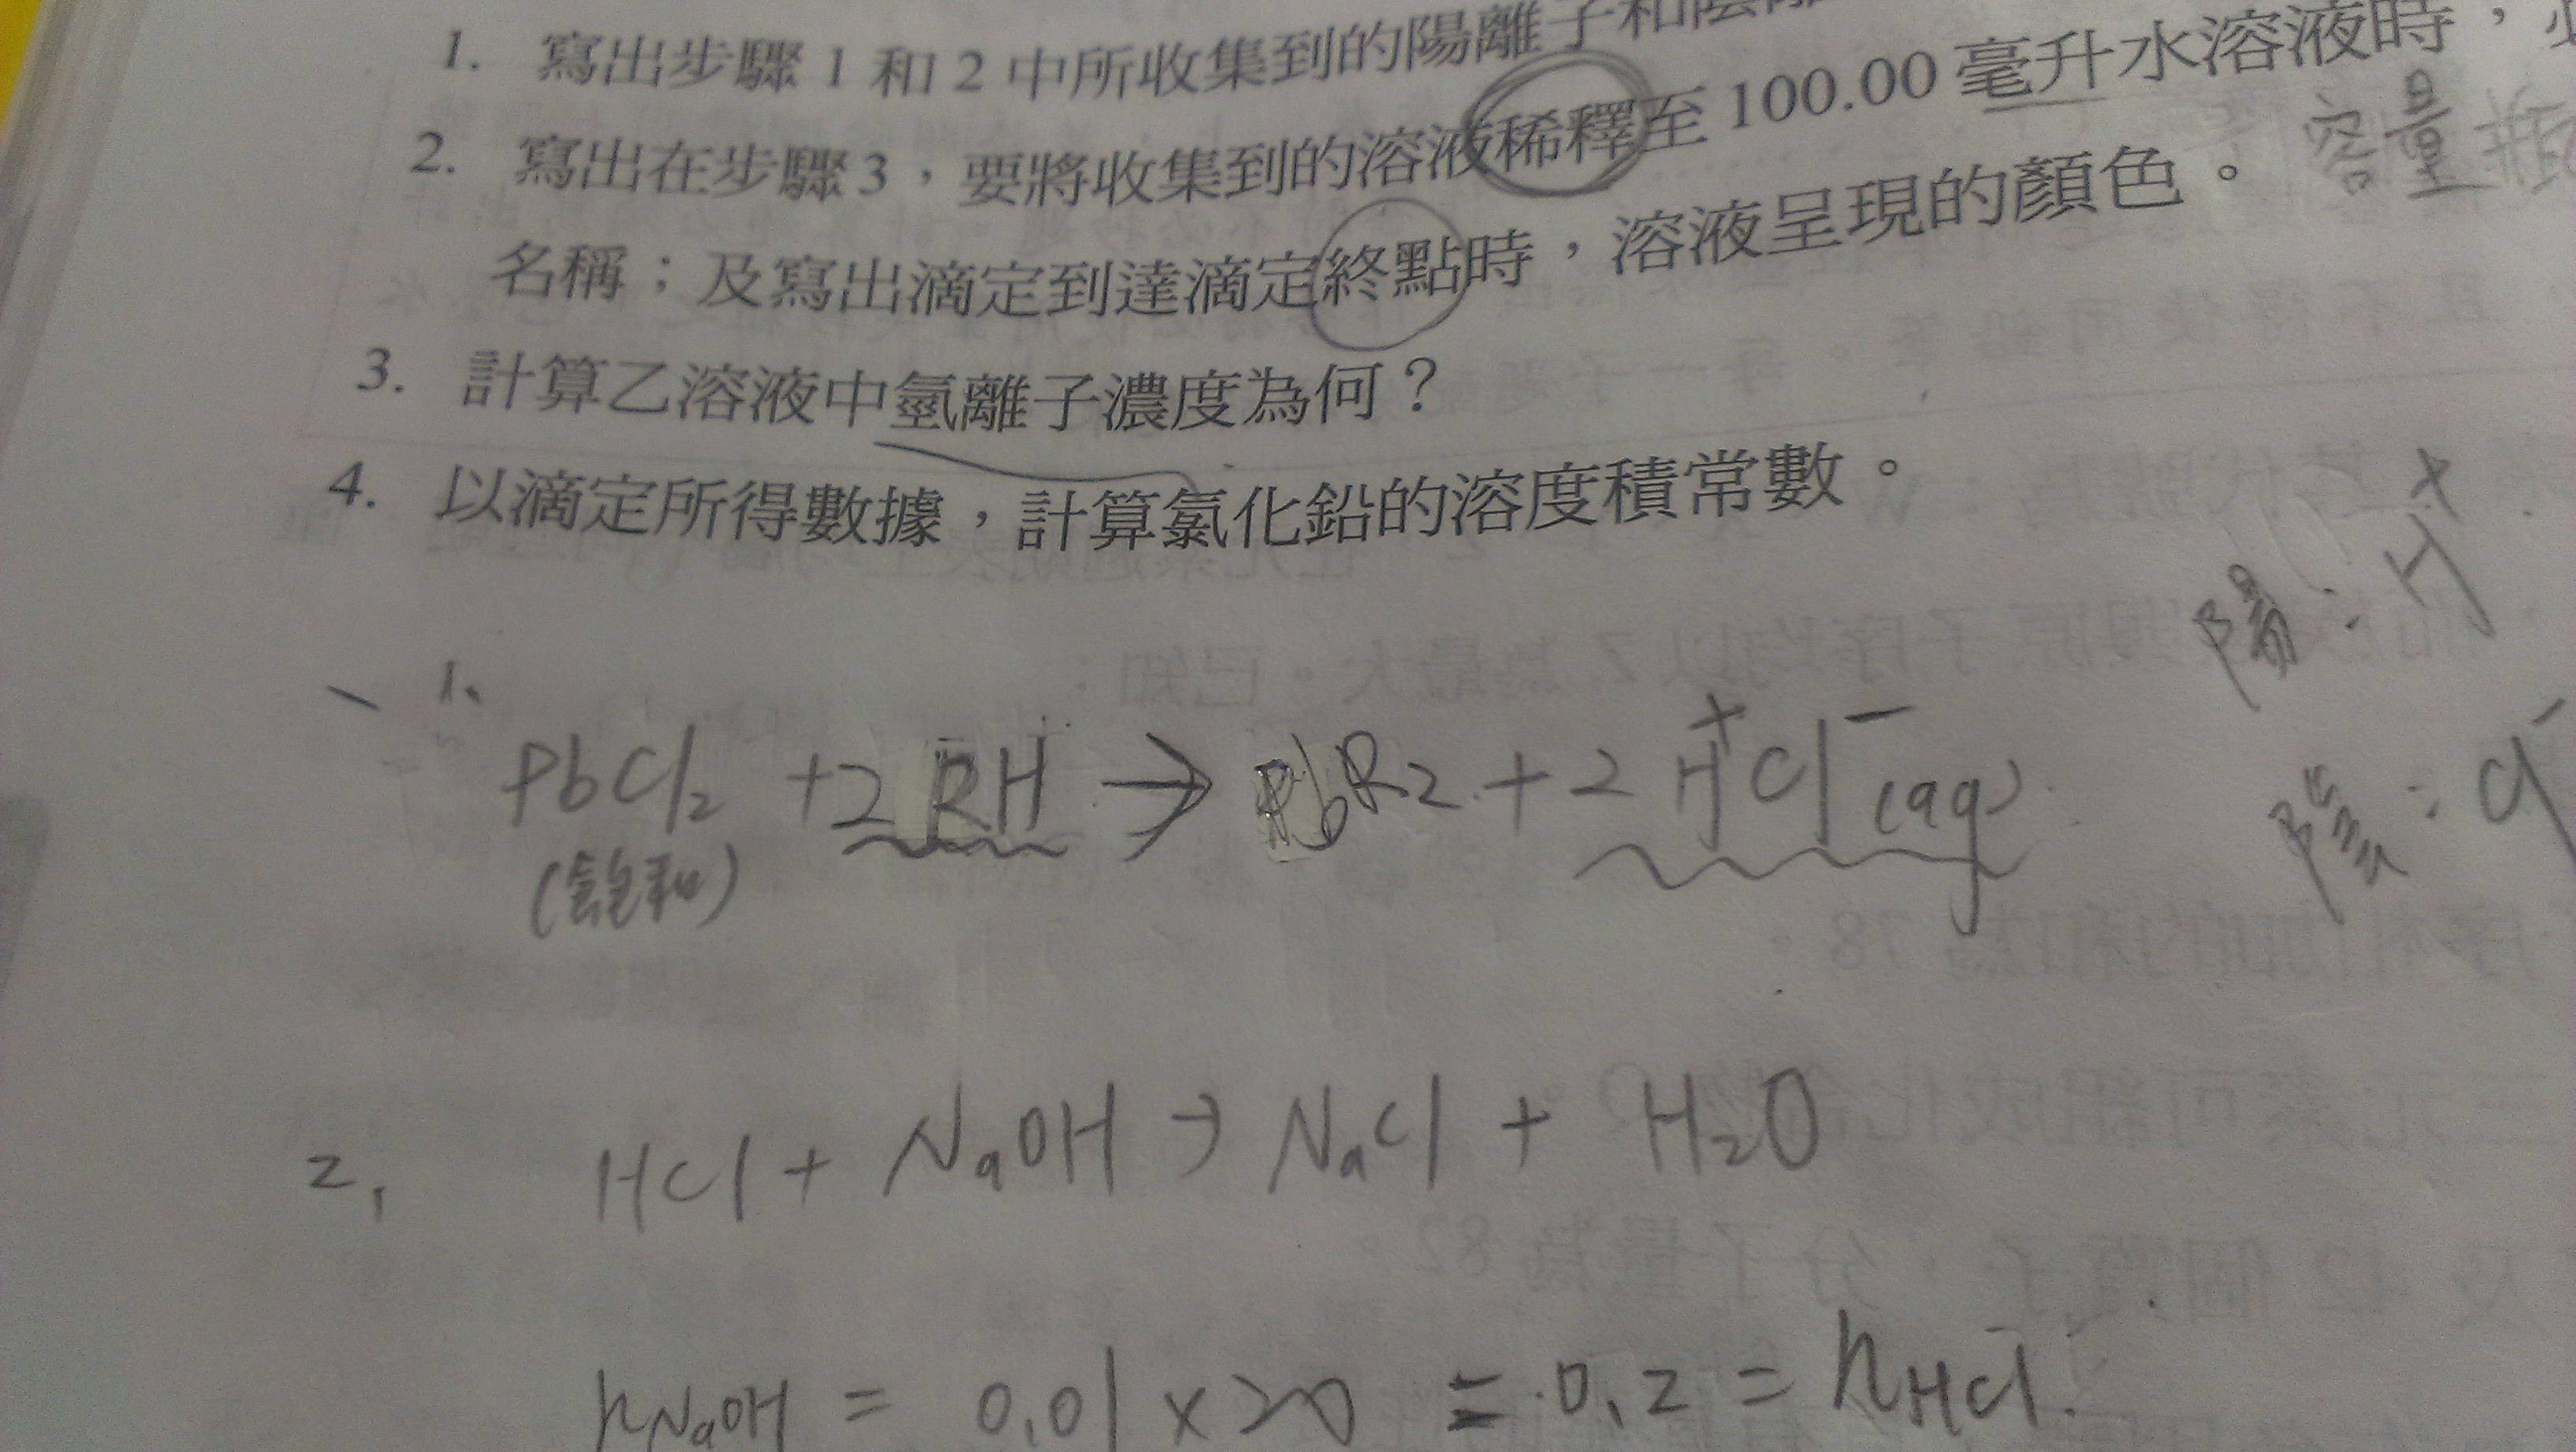 1. 寫出步驟 1 和 2 中所收集到的陽離子和陰離
2. 寫出在步驟 3，要將收集到的溶液稀釋至 100.00 毫升水溶液時，必
容量瓶
名稱；及寫出滴定到達滴定終點時，溶液呈現的顏色。
3. 計算乙溶液中氫離子濃度為何？
4. 以滴定所得數據，計算氯化鉛的溶度積常數。
陽：H⁺
陰：Cl⁻
1.
PbCl₂ + 2 RH → PbR₂ + 2 H⁺Cl⁻(aq)
(飽和)
2. HCl + NaOH → NaCl + H₂O
nNaOH = 0.01 × 20 = 0.2 = nHCl